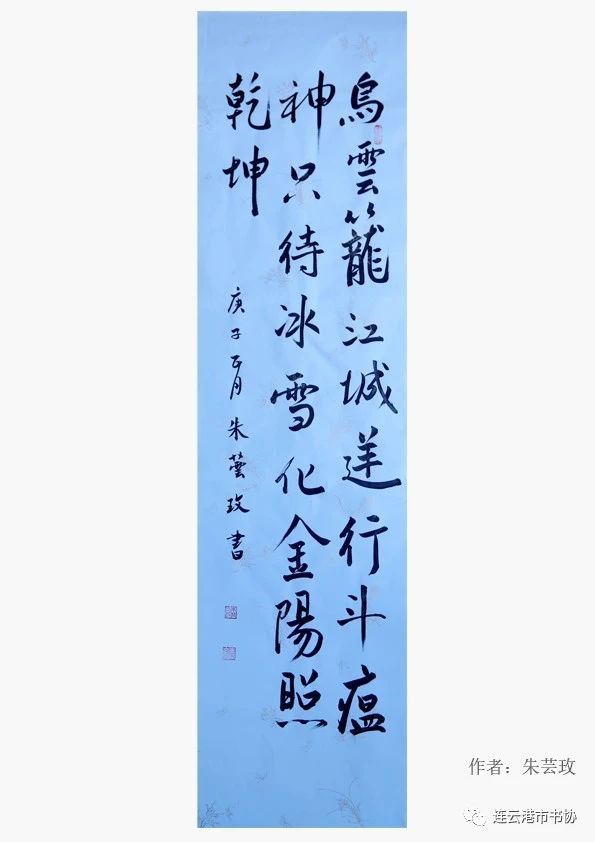 烏雲籠江城逆行斗瘟
神只待冰雪化金陽照
乾坤
庚子正月朱蕓玫書
作者：朱芸玫
连云港市书协